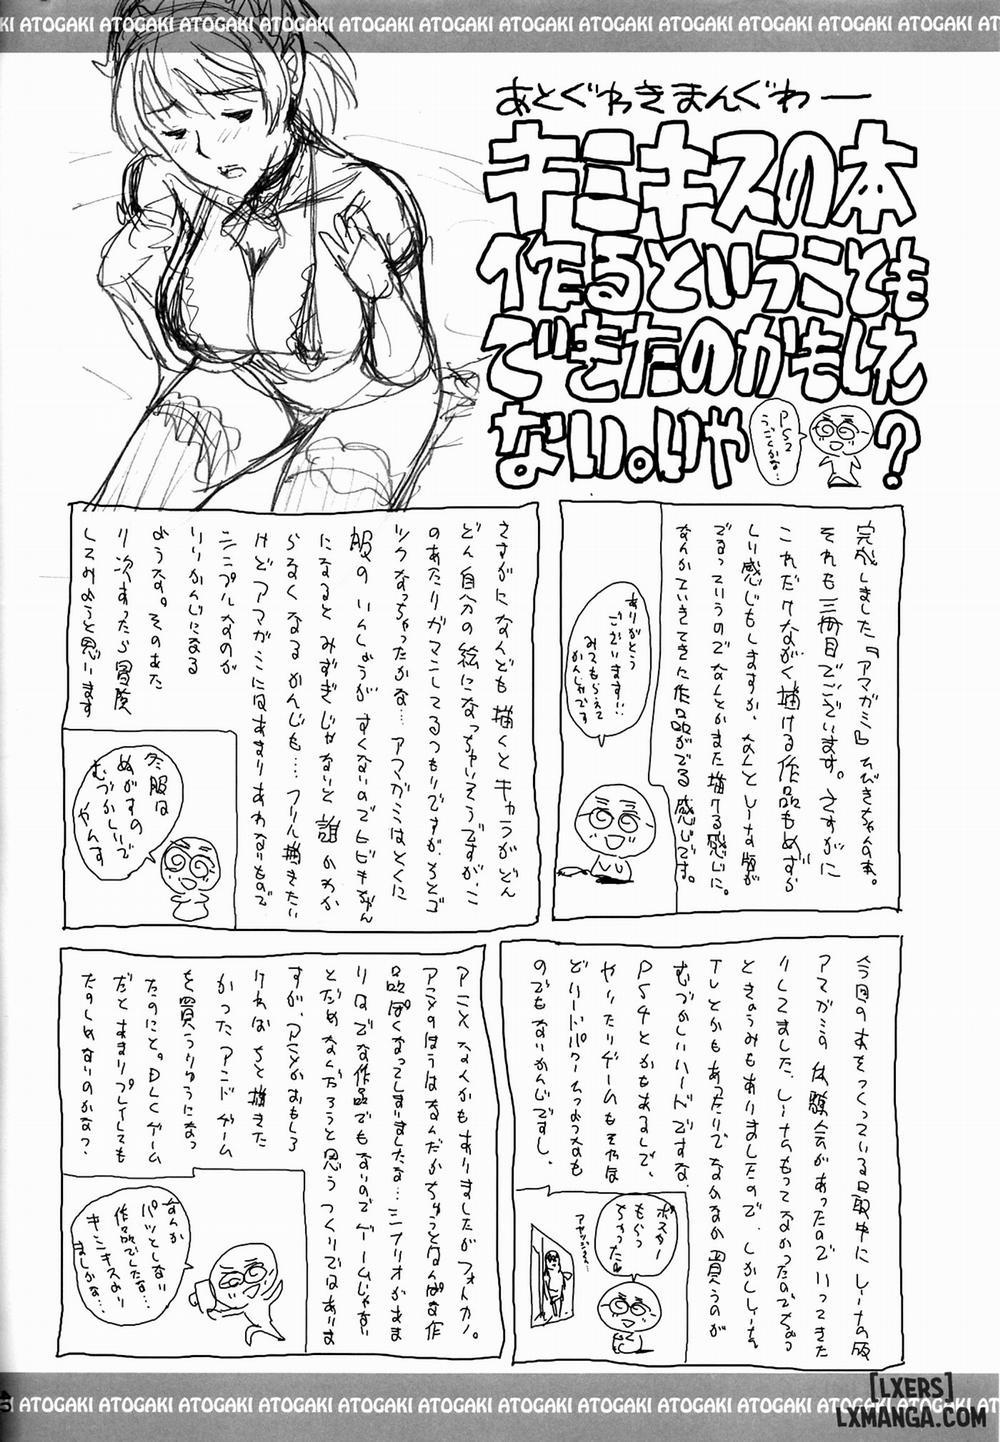 KI ATOGAKI ATOGAKI ATOGAKI ATOGAKI ATOGAKI ATOGAKI ATOGAKI ATOGAKI ATOGAKI ATOGAKI
あとぐゎきまんぐわー
キミキスの本
作るということも
できたのかもしれ
ない。いや
PS2
うごくかな…
?
完成しました『アマガミ』ひびきちゃん本。
それも三冊目でございます。さすがに
これだけながく描ける作品もめずら
しい感じもしますが、なんとしーな版が
でるっていうのでなんとかまた描ける感じに。
なんかていきてきに作品がでる感じです。
ありがとう
ございます!!
みてもらえて
かんしゃです
さすがになんども描くとキャラがどん
どん自分の絵になっちゃいそうですが、こ
のあたりガマンしてるつもりですが、そろそろ
ツクなっちゃったかな…アマガミはとくに
服のいしょうがすくないのでヒビキちゃん
になるとみずぎじゃないと誰かわか
らなくなるかんじも…フリル描きたい
けどアマガミにはあまりあわないもので
シンプルなのが
いいかんじになる
ような。そのあた
り次あったら冒険
してみようと思います
冬服は
ぬがすの
むづかしいで
やんす
今回の本をつくっている最中にしーなの版
アマガミの体験会があったのでいってきた
りしてました、しーなもってなかったのでちょっ
ときょうみもありましたので。しかししーな
TVとかもあったりでなかなか買うのが
むづかしいハードですな
PS4とかもあるしで、
やりたいゲームもそやほ
どハードパワーつようなもの
のでもないかんじですし、
ポスター
もらっ
ちゃった
アニメなんかもありましたがフォトカノ。
アニメのほうはなんだかちょっとなんぱな作
品ぽくなってしまいましたな…シナリオがまま
りはでな作品でもないのでゲームじゃない
とだめなんだろうと思うつくりではありま
すが、アニメがおもしろ
ければもっと描きた
かったアンドゲーム
を買うりゆうになっ
たのにと。DLCゲーム
だとあまりプレイしても
たのしめないのかな?
なんか
パッとしない
作品でしたな…
キミキスより
ましかな…
ATOGAKI ATOGAKI ATOGAKI ATOGAKI ATOGAKI ATOGAKI ATOGAKI ATOGAKI ATOGAKI ATOGAKI
[LXERS]
LXMANGA.COM